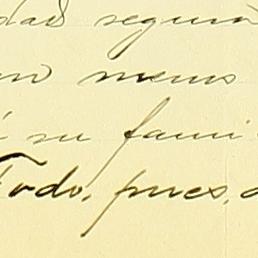 dad segun
en menos
á su fami
Todo, pues, a